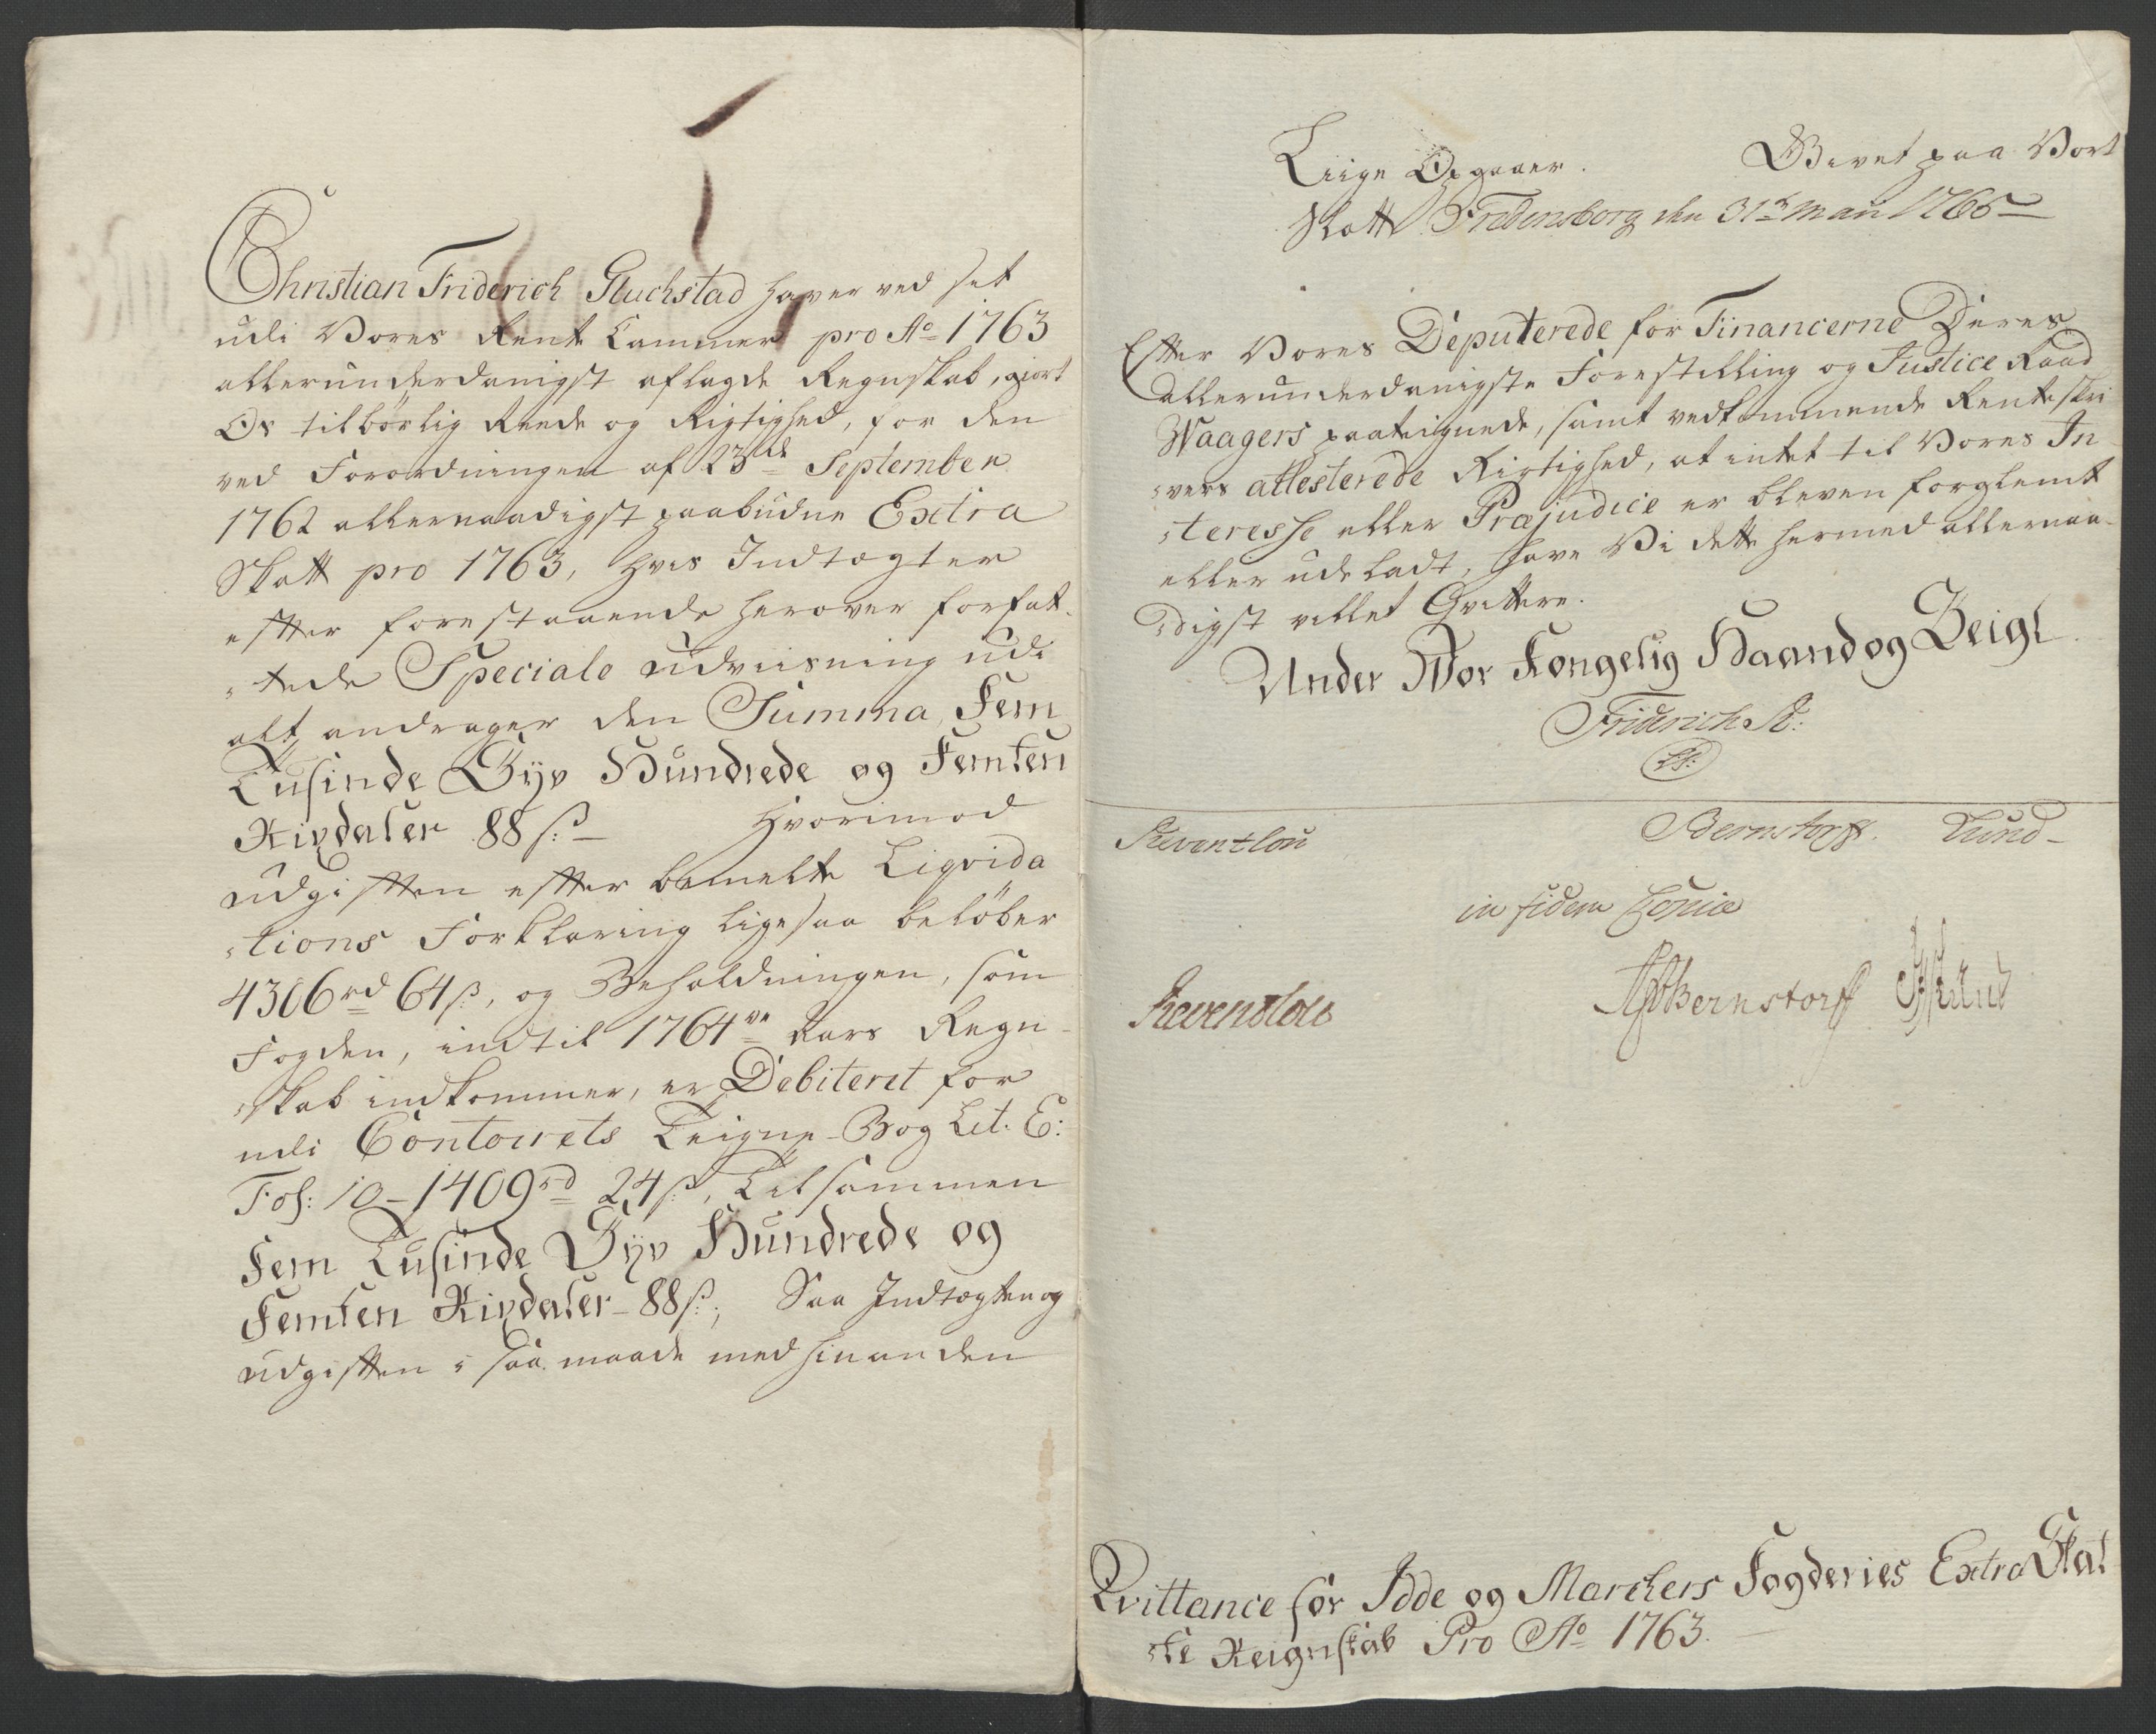 Christian Friderich Gluchstad haver ved sit
udi Vores Rente Cammer pro Ao 1763
allerunderdanigst aflagde Regnskab, giort
Os tilbörlig Reede og Rigtighed, for den
ved Forordningen af 23de September
1762 allernaadigst paabudne Extra
Skatt pro 1763, hvis Indtægter
efter forestaaende herover forfat-
tede Speciale Udviisning udi
alt andrager den Summa, Fem
Tusinde Syv Hundrede og Femten
Rixdaler 88 ß:
Hvorimod
Udgiften efter bemelte Liqvida
tions Forklaring ligesaa belöber
4306 rd 64 ß, og Beholdningen, som
Fogden, indtil 1764de Aars Regn-
skab indkommer, er Debiteret for
udi Contoirets Teigne-Bog Lit. E:
Fol: 10 - 1409 rd 24 ß, Tilsammen
Fem Tusinde Syv Hundrede og
Femten Rixdaler 88 ß:, Saa Indtægten og
Udgiften i saa maade med hinanden
Liige Opgaaer. Givet paa Vort
Slott Fredensborg den 31te Maii 1765
Efter Vores Deputerede for Financerne Deres
allerunderdanigste Forestilling og Justice Raad
Waagers paateignede, samt vedkommende Renteskri
vers attesterede Rigtighed, at intet til Vores In
teresse eller Præjudice er bleven forglemt
eller udeladt, have Vi dette hermed allernaa-
digst villet Qvittere.
Under Vor Kongelig Haand og Zeigl
Friderich R:
LS:
Reventlou Bernstorff. Lund-
in fidem Copiæ
Reventlou Bernstorff Lund
Qvittance for Idde og Marchers Fogderies Extra Skat
te Reignskab Pro Ao 1763.